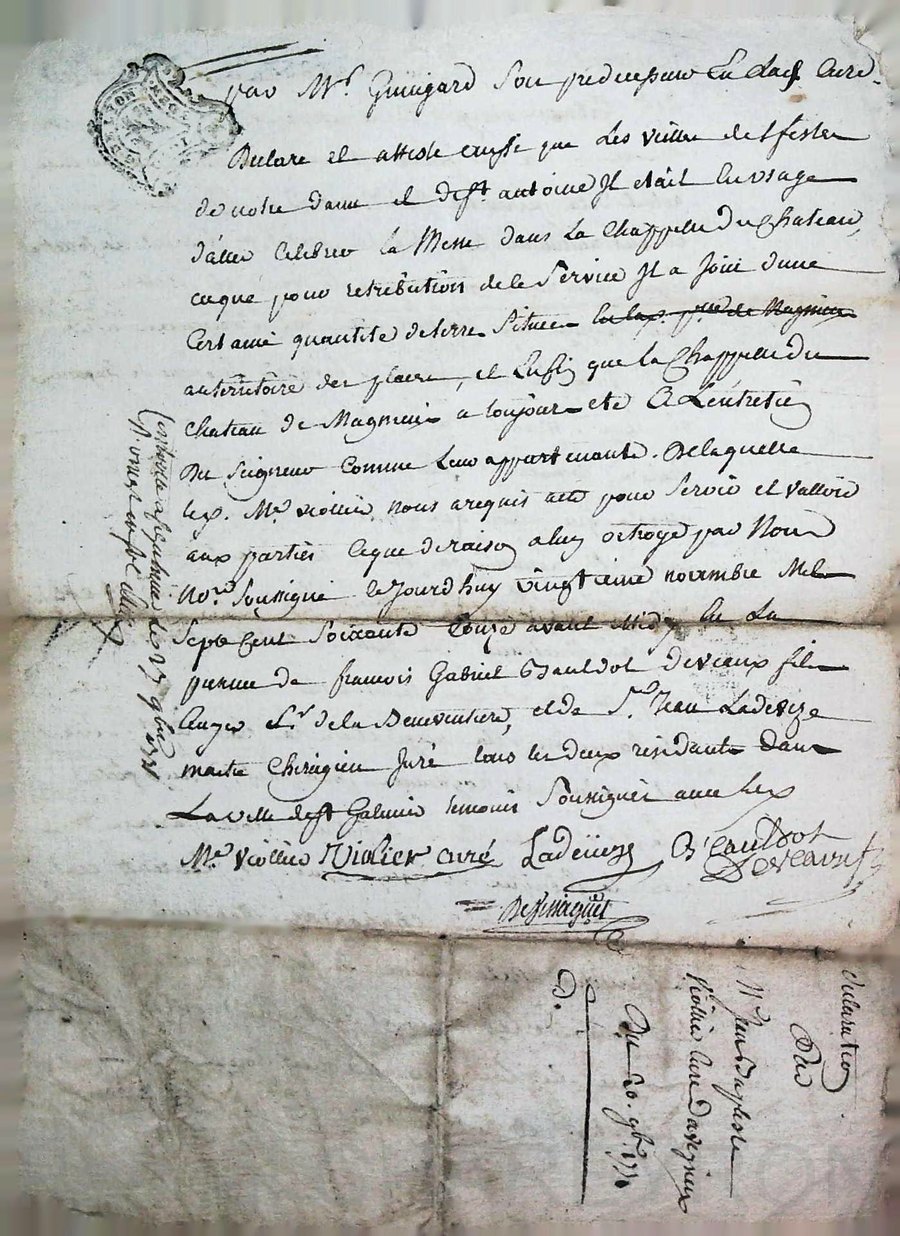 par Mr. Guingard Son predecesseur En lad. Cure.
Declare et atteste aussi que Les veilles des festes
de notre dame et de St. antoine Il etait En usage
d'aller Celebrer la Messe dans La Chappelle du Chateau,
et que pour retribution de le Service Il a Joui dune
Certaine quantité de terre Située
au territoire des places, et Enfin que la Chappelle du
Chateau de Magnieu a toujours eté A L'entretien
du Seigneur Comme Leur appartenante. De laquelle
led. Mr. viollier nous a requis acte pour Servir et valloir
aux parties Ce que de raison a luy octroyé par Nous
No.re Soussigné Cejourdhuy vingtieme novembre Mil
Sept Cent Soixante Onze avant Midy En La
presence de francois Gabriel Bauldot deveaux fils
Sr. de la Beneventiere, et de Sr. Jean Ladeveze
maitre Chirugien Juré tous les deux residants dans
La ville de St Galmier temoins Soussignés avec led.
Mr. viollier Violier curé Ladeveze Bauldot
Deveaux
Controllé a St galmier Le 27 9bre 1771
Declaration
Par
Mr. Jean Baptiste
Viollier Curé daveizieux
Du 20. 9bre 1771
D.